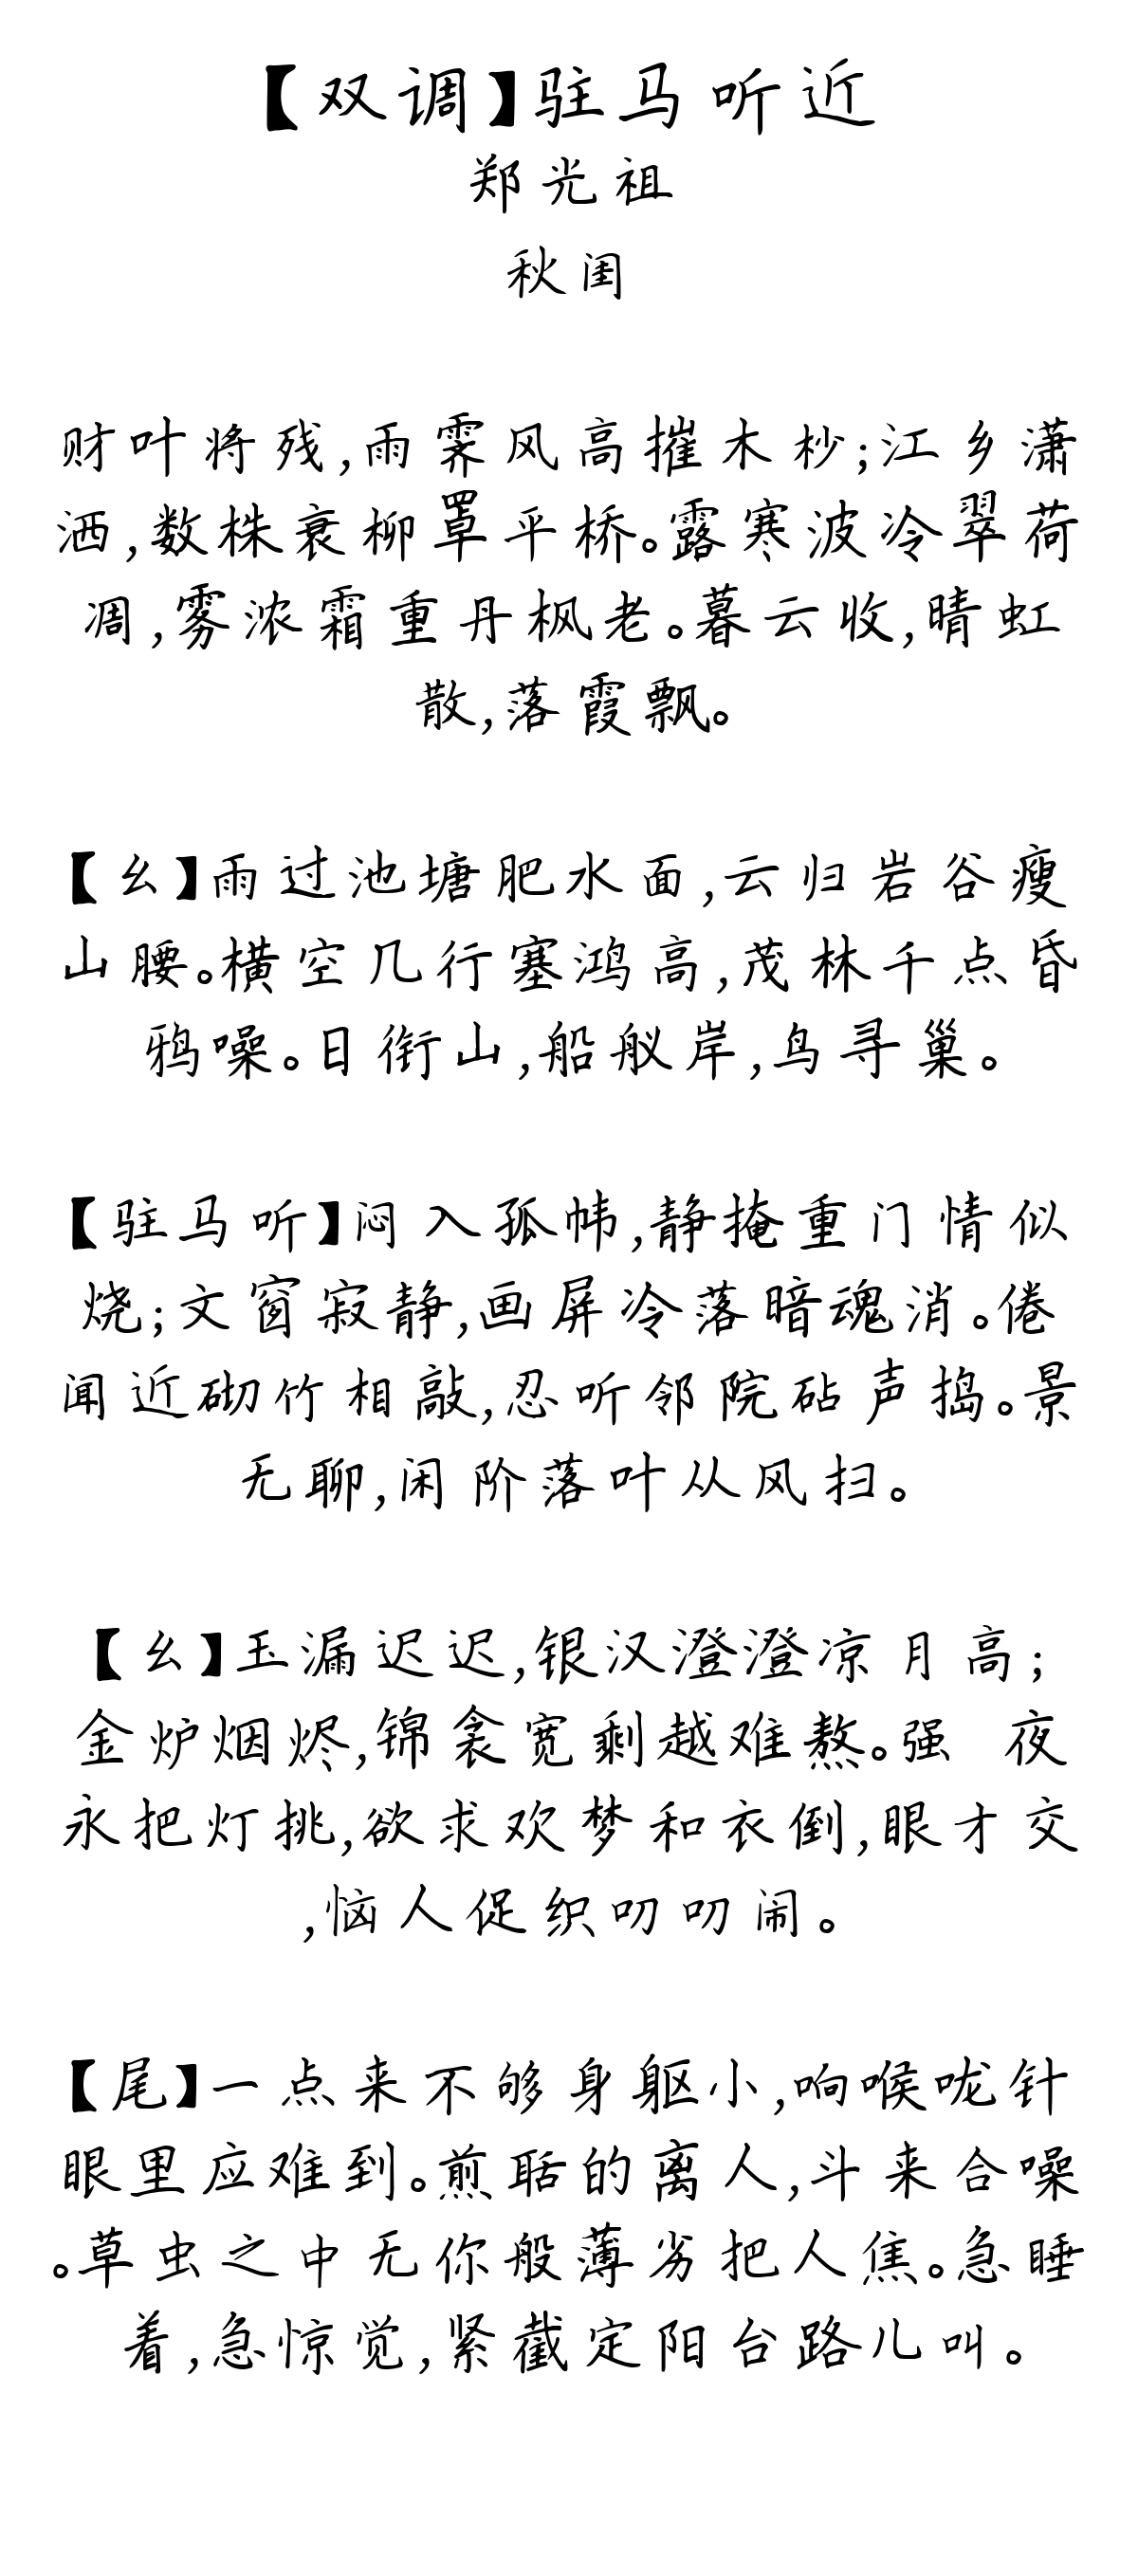 【双调】驻马听近
郑光祖
秋闺
财叶将残,雨霁风高摧木杪;江乡潇
洒,数株衰柳罩平桥。露寒波冷翠荷
凋,雾浓霜重丹枫老。暮云收,晴虹
散,落霞飘。
【幺】雨过池塘肥水面,云归岩谷瘦
山腰。横空几行塞鸿高,茂林千点昏
鸦噪。日衔山,船舣岸,鸟寻巢。
【驻马听】闷入孤帏,静掩重门情似
烧;文窗寂静,画屏冷落暗魂消。倦
闻近砌竹相敲,忍听邻院砧声捣。景
无聊,闲阶落叶从风扫。
【幺】玉漏迟迟,银汉澄澄凉月高;
金炉烟烬,锦衾宽剩越难熬。强 夜
永把灯挑,欲求欢梦和衣倒,眼才交
,恼人促织叨叨闹。
【尾】一点来不够身躯小,响喉咙针
眼里应难到。煎聒的离人,斗来合噪
。草虫之中无你般薄劣把人焦。急睡
着,急惊觉,紧截定阳台路儿叫。